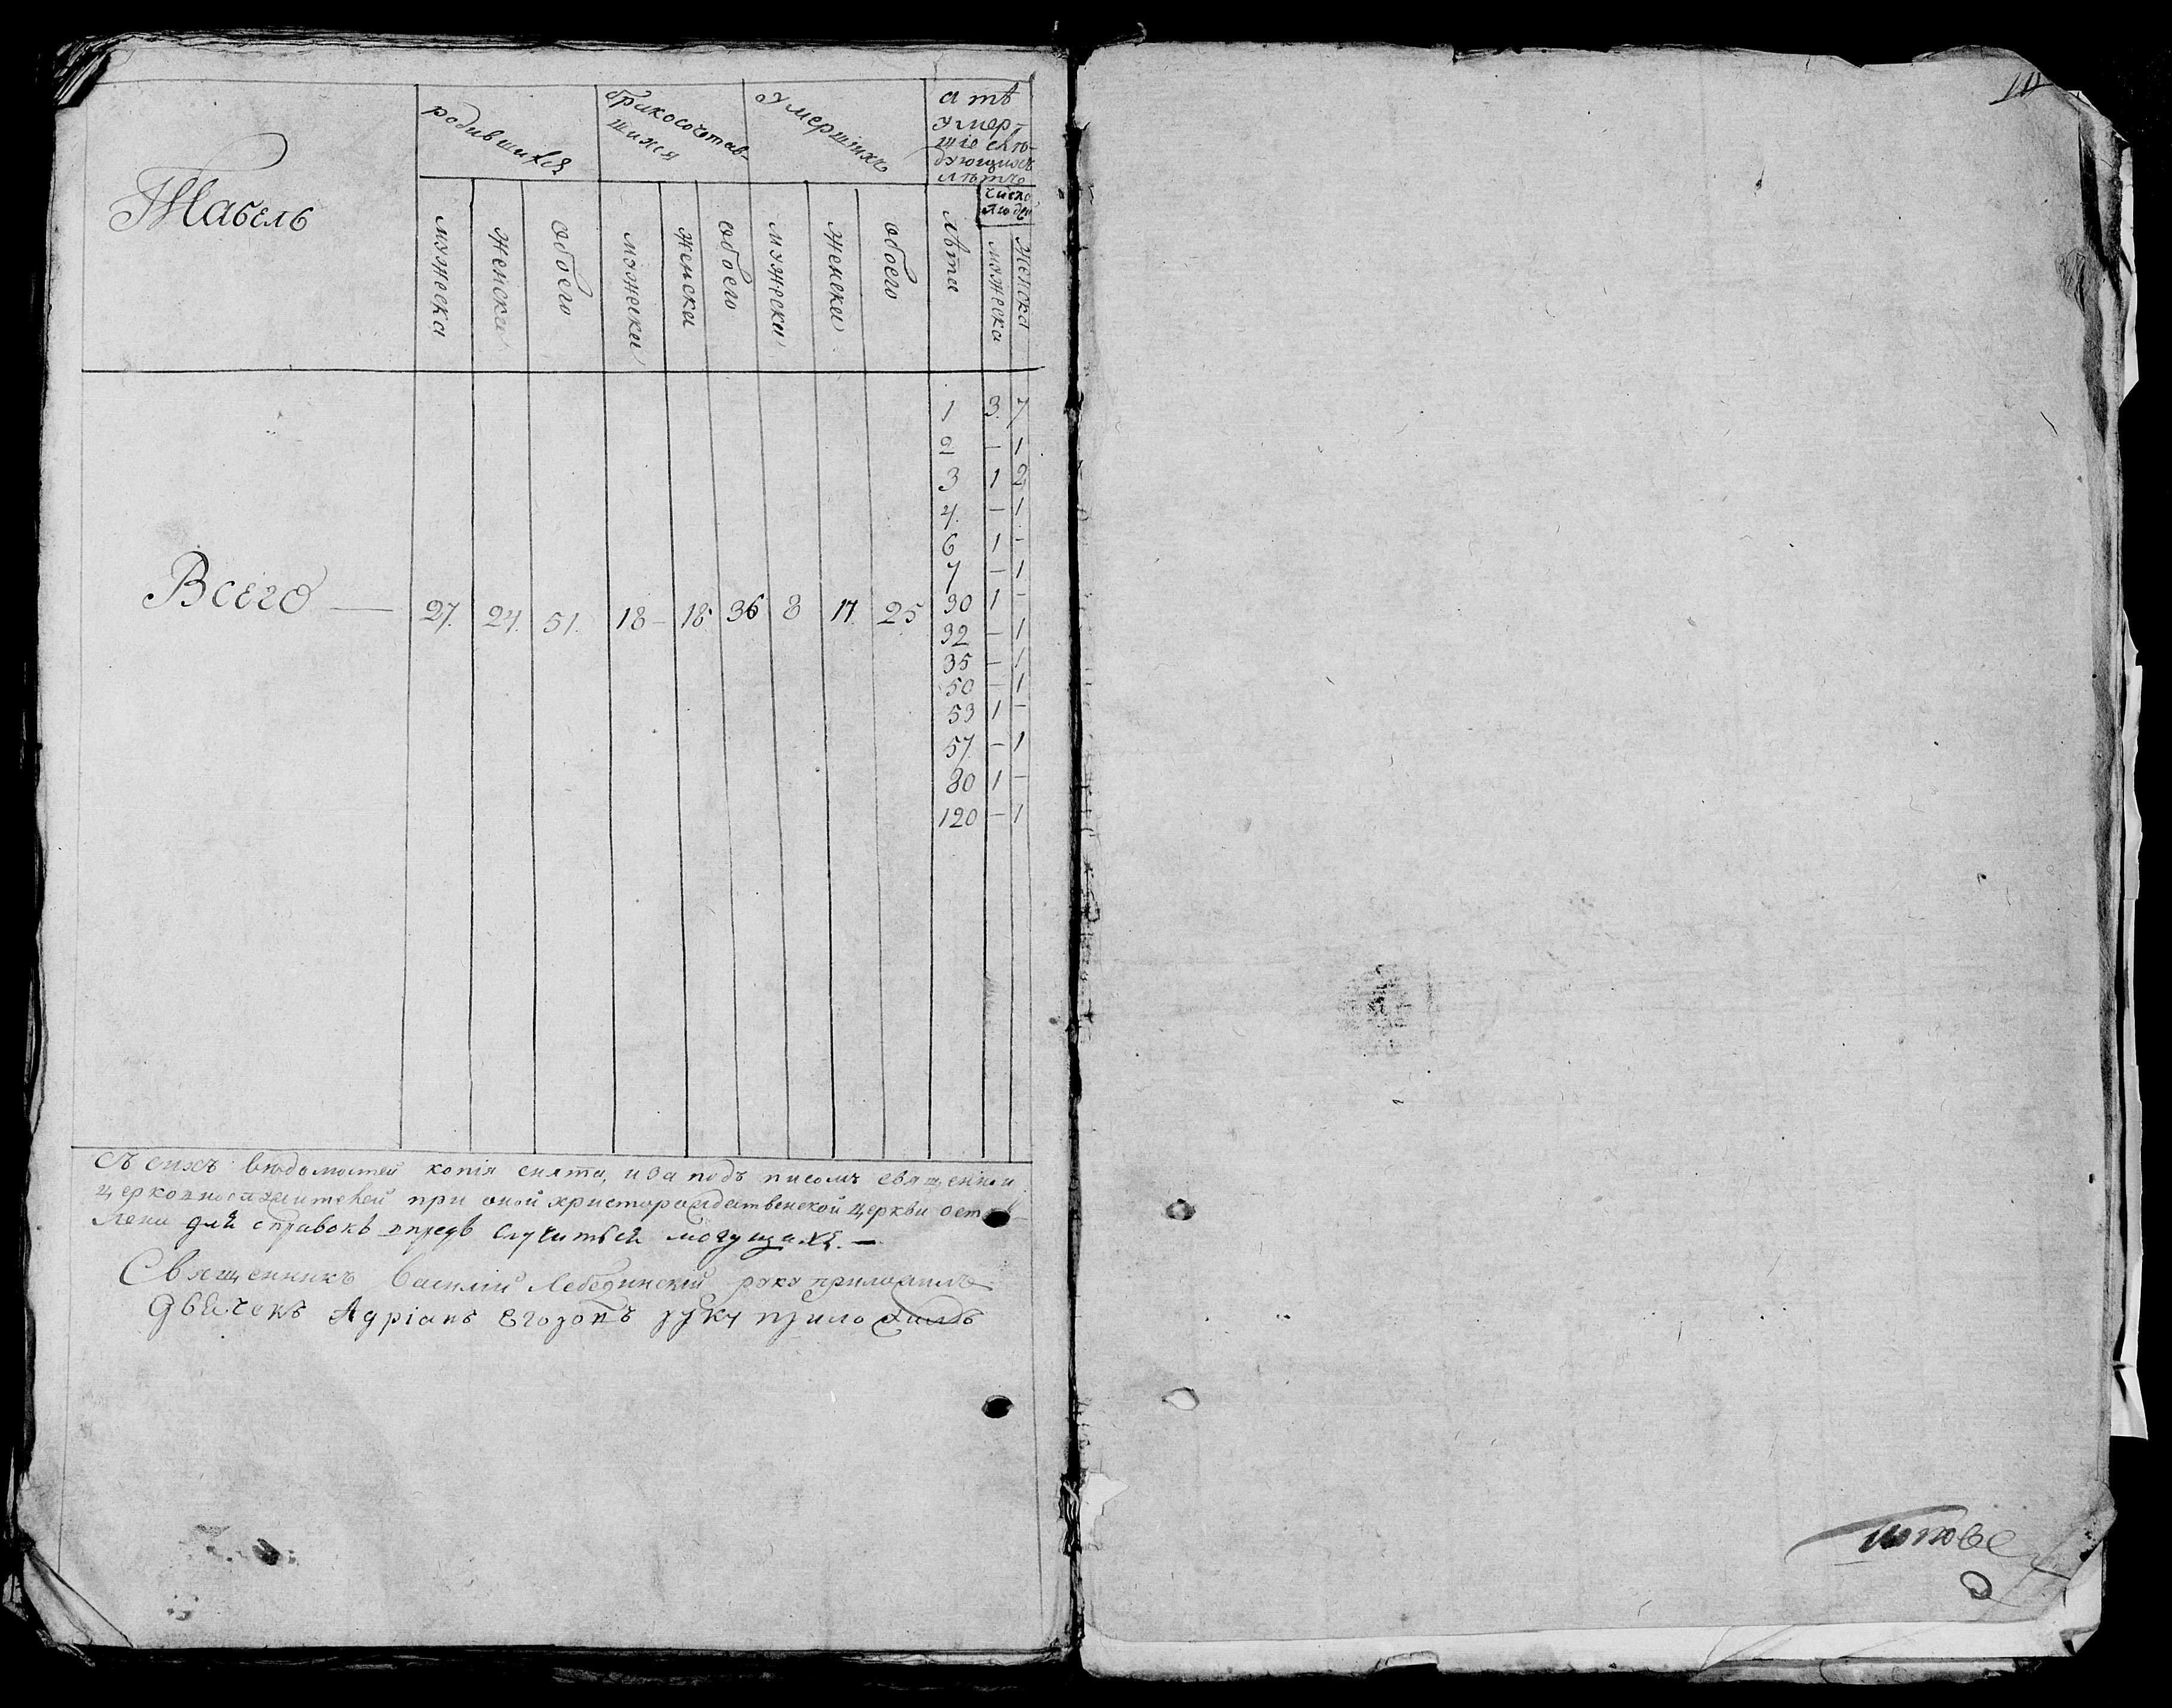 Табель
родившихся
бракосочетав-
шихся
Умершихъ
а тѣ
умер-
шіе слѣ-
дующихъ
лѣтъ
число
людей
мужеска
женска
обоего
мужеска
женска
обоего
мужеска
женска
обоего
лѣта
мужеска
женска
1 3. 7
2 – 1
3 1 2
4. – 1
6 1 –
7 – 1
Всего — 27. 24. 51. 18 – 18 36 8 17. 25
30 1 –
32 – 1
35 – 1
50 – 1
53 1 –
57 – 1
80 1 –
120 – 1
Съ сихъ вѣдомостей копія снята, и за подъ писомъ священно и
церковнослужителей при оной христорождественской церкви остав-
лена для справокъ впредь случиться могущихъ. —
Священникъ Василій Лебединскій руку приложилъ
Дьячекъ Адріанъ Егоровъ руку приложилъ